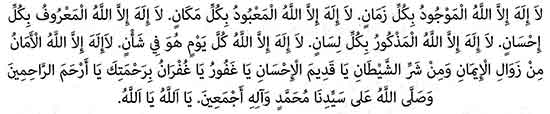 لاَ إِلَهَ إِلاَّ اللَّهُ الْمَوْجُودُ بِكُلِّ زَمَانٍ. لاَ إِلَهَ إِلاَّ اللَّهُ الْمَعْبُودُ بِكُلِّ مَكَانٍ. لاَ إِلَهَ إِلاَّ اللَّهُ الْمَعْرُوفُ بِكُلِّ
إِحْسَانٍ. لاَ إِلَهَ إِلاَّ اللَّهُ الْمَذْكُورُ بِكُلِّ لِسَانٍ. لاَ إِلَهَ إِلاَّ اللَّهُ كُلَّ يَوْمٍ هُوَ فِي شَأْنٍ. لاَإِلَهَ إِلاَّ اللَّهُ الْأَمَانُ
مِنْ زَوَالِ الْإِيمَانِ وَمِنْ شَرِّ الشَّيْطَانِ يَا قَدِيمَ الْإِحْسَانِ يَا غَفُورُ يَا غُفْرَانُ بِرَحْمَتِكَ يَا أَرْحَمَ الرَّاحِمِينَ
وَصَلَّى اللَّهُ عَلَى سَيِّدِنَا مُحَمَّدٍ وَآلِهِ أَجْمَعِينَ. يَا اَللَّهُ يَا اَللَّهُ.